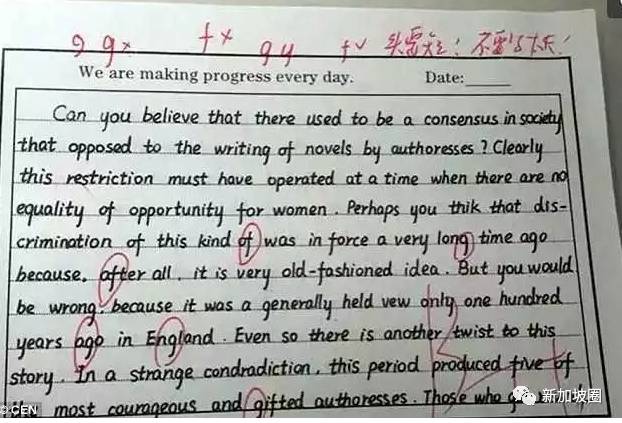 g gx fx gy f✓ 头需短！不要
We are making progress every day. Date:
Can you believe that there used to be a consensus in society
that opposed to the writing of novels by authoresses ? Clearly
this restriction must have operated at a time when there are no
equality of opportunity for women . Perhaps you thik that dis-
crimination of this kind of was in force a very long time ago
because, after all , it is very old-fashioned idea . But you would
be wrong, because it was a generally held vew only one hundred
years ago in England . Even so there is another twist to this
story . In a strange condradiction , this period produced five of
the most courageous and gifted authoresses . Those who
©CEN
新加坡圈